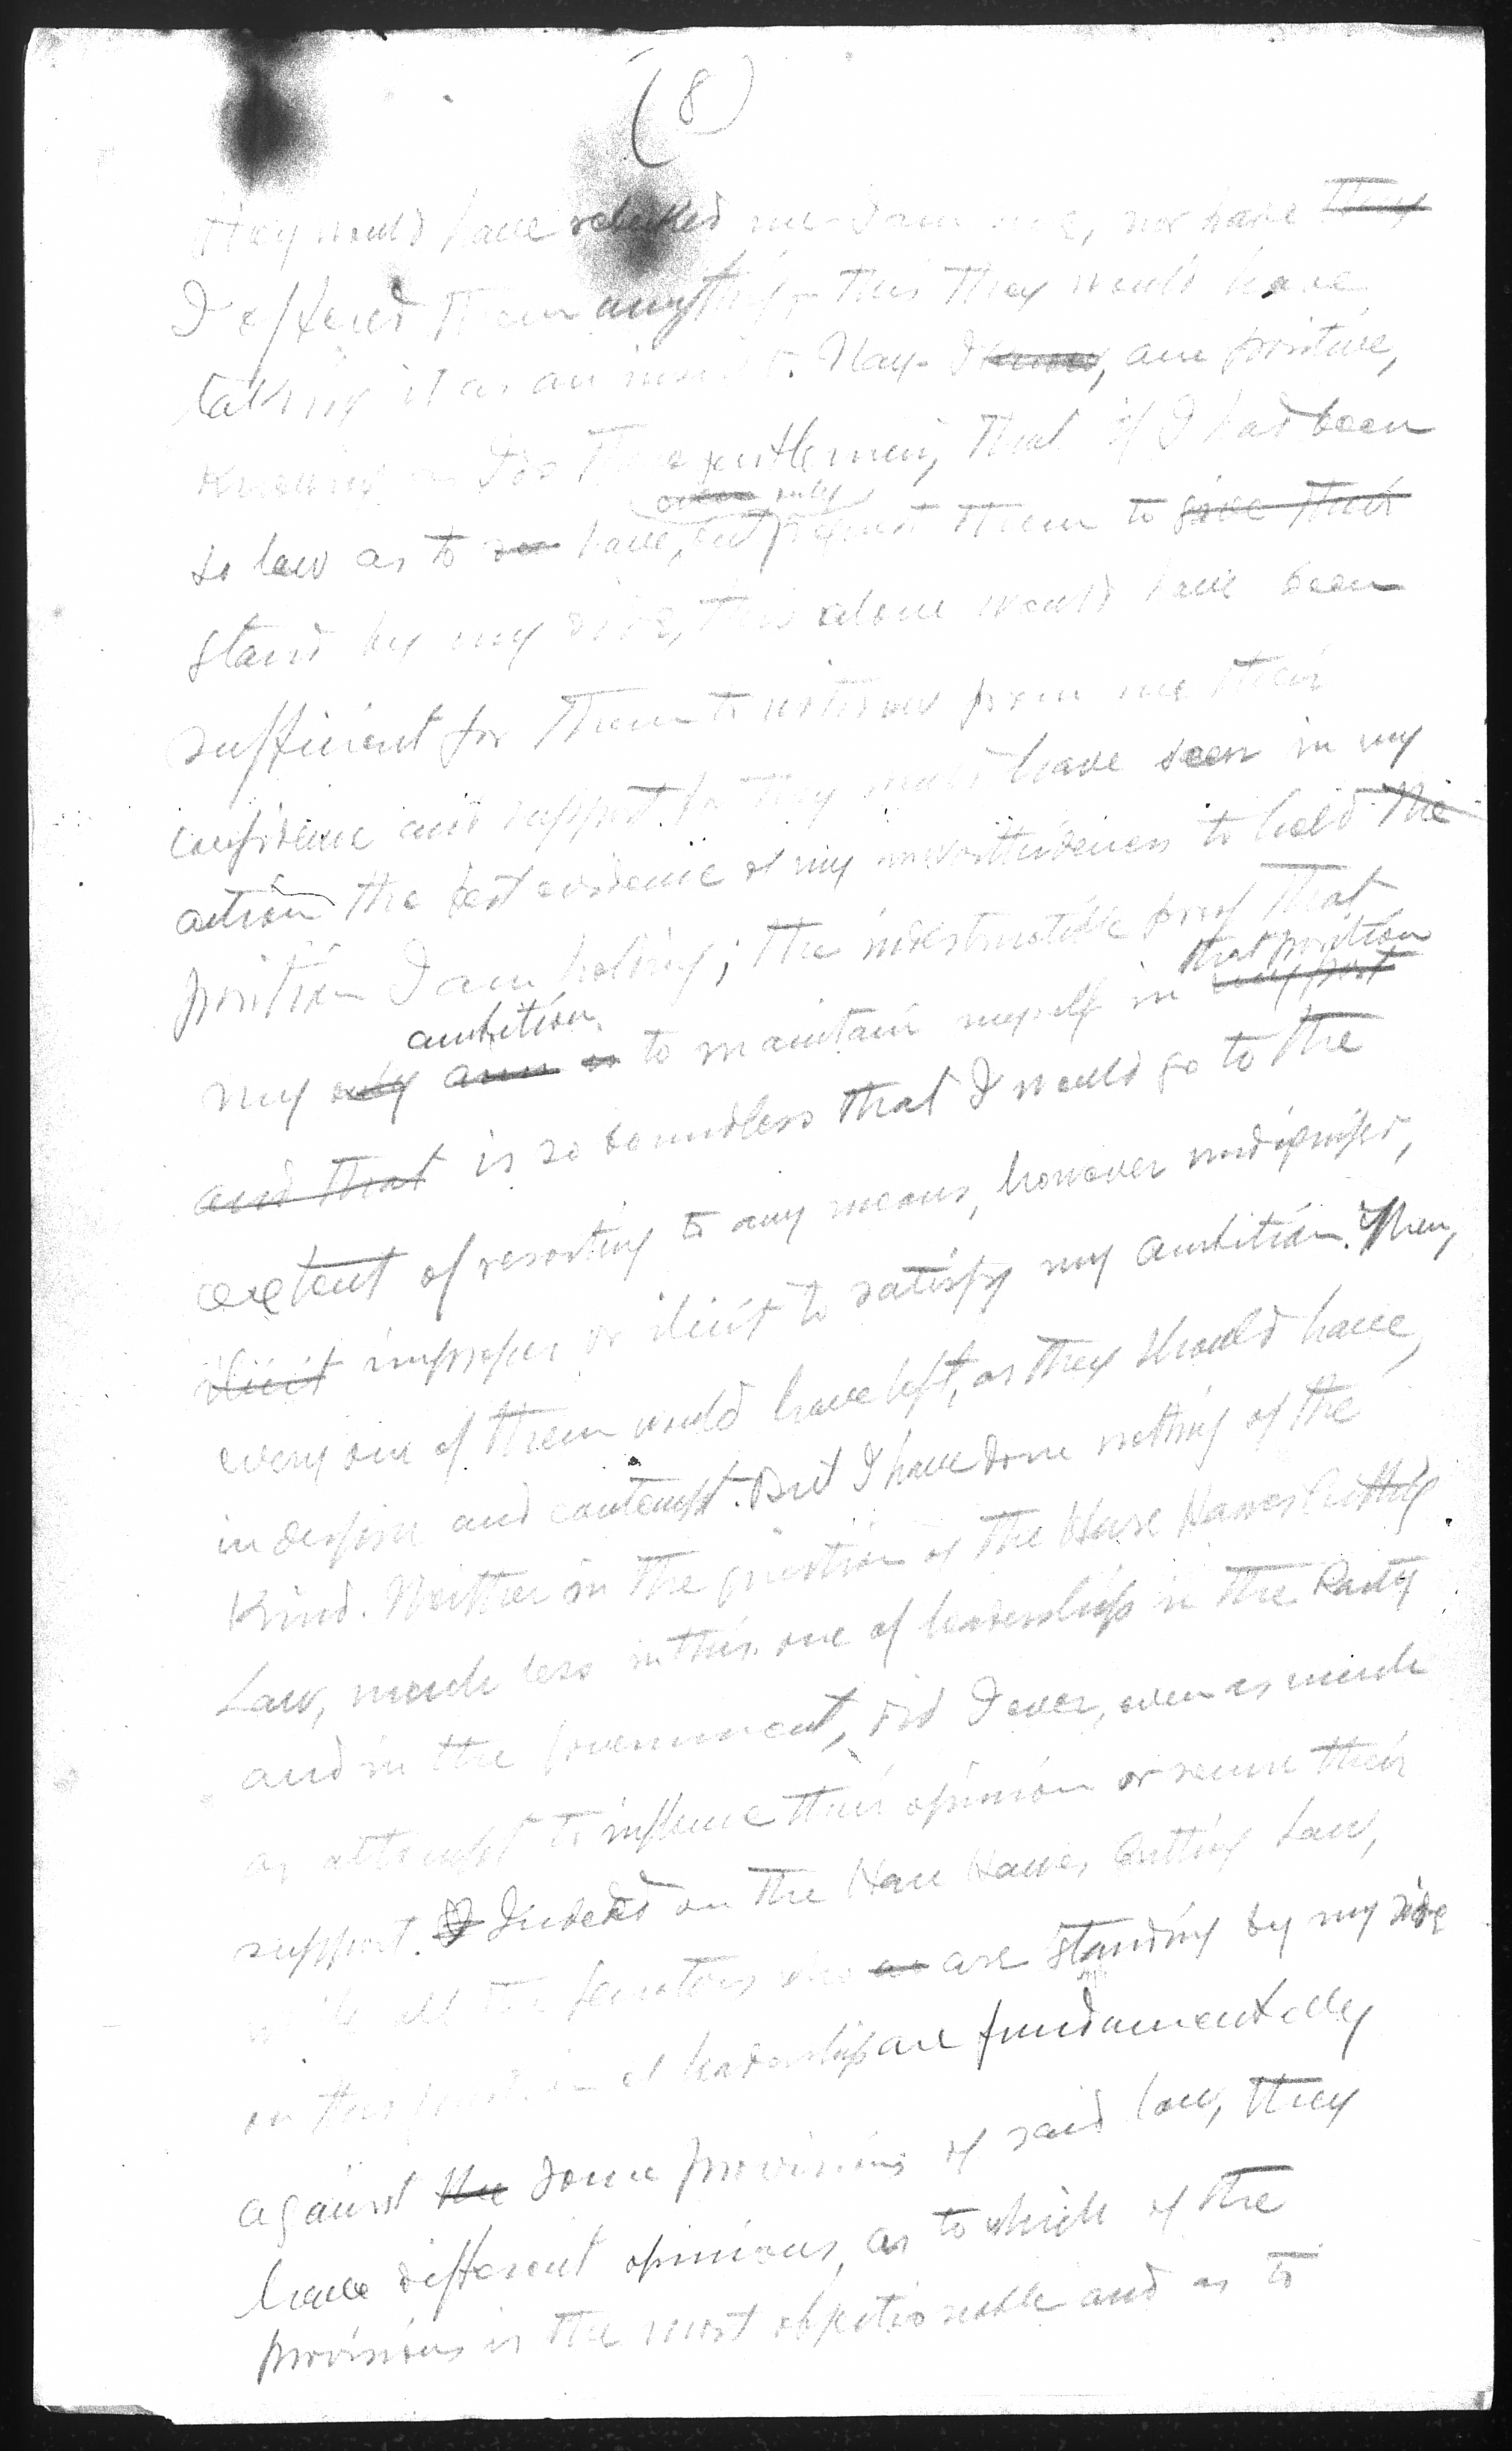 (8)
they would have rebuked me I am sure, nor have they
I offered them anything this they would have
taking it as an insult. Nay - I know, am positive,
knowing as I do these gentlemen, that if I had been
so low as to have, but only request them to give their
stand by my side, this alone would have been
sufficient for them to withdraw from me their
confidence and support for they would have seen in my
action the best evidence of my unworthiness to hold the
position I am holding; the indestructible proof that
my only aim is ambition to maintain myself in my post that position
and that is so boundless that I would go to the
extent of resorting to any means, however undignified,
illicit improper or illicit to satisfy my ambition. Then,
every one of them would have left, as they should have,
in despise and contempt. But I have done nothing of the
kind. Neither in the question of the Hare Hawes Cutting
Law, much less in this one of leadership in the Party
and in the government, did I ever, even as much
as attempt to influence their opinion or secure their
support. Indeed on the Hare Hawes Cutting Law,
while all the senators who are standing by my side
on this question of leadership are fundamentally
against the some provisions of said law, they
have different opinions, as to which of the
provisions is the most objectionable and as to